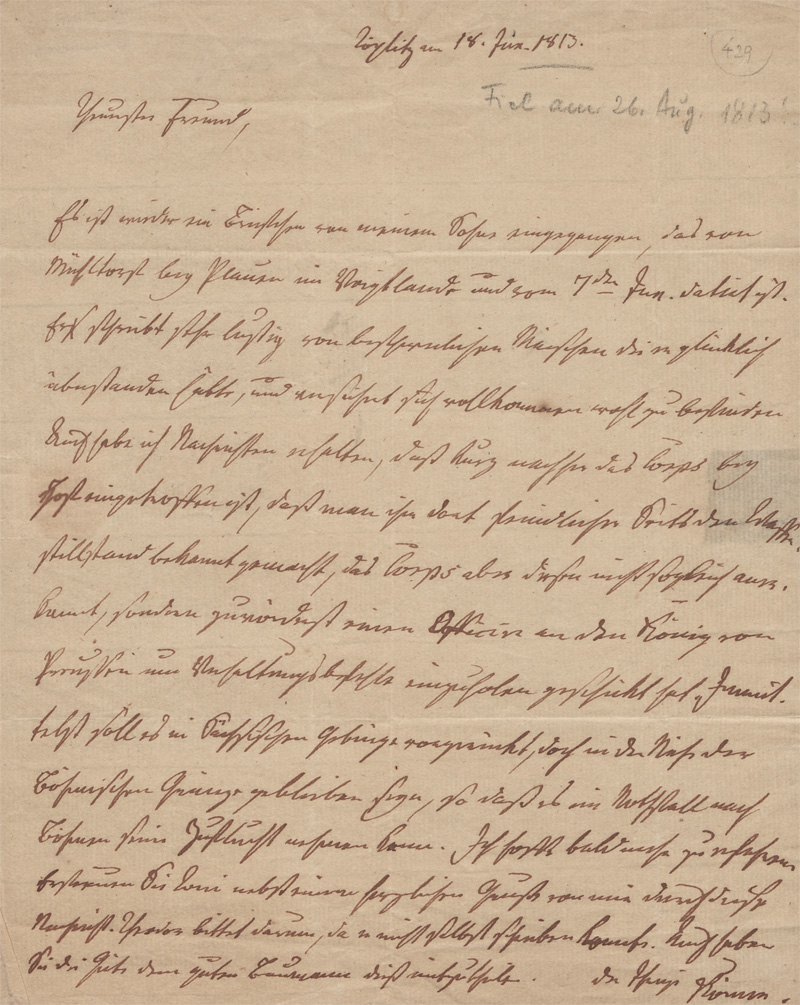 Töplitz am 18. Jun. 1813.
429
Fiel am 26. Aug. 1813
Theurster Freund,
Es ist wieder ein Briefchen von meinem Sohne eingegangen, das von
Mühltorf bey Plauen im Voigtlande und vom 7den Jun. datirt ist.
Er schreibt sehr lustig von beschwerlichen Märschen die er glücklich
überstanden hätte, und versichert sich vollkommen wohl zu befinden
Auch habe ich Nachrichten erhalten, daß kurz nachher das Corps bey
Hof eingetroffen ist, daß man ihm dort feindlicher Seits den Waffen-
stillstand bekannt gemacht, das Corps aber diesen nicht sogleich aner-
kannt, sondern zuvörderst einen Officier an den König von
Preussen um Verhaltungsbefehle einzuholen geschickt hat. Immit-
telst soll es im Sächsischen Gebirge vorgerückt, doch in der Nähe der
Böhmischen Gränze geblieben seyn, so daß es im Nothfall nach
Böhmen seine Zuflucht nehmen kann. Ich hoffe bald mehr zu erfahren
nebst einem herzlichen Gruß von mir durch diese
Nachricht. Theodor bittet darum, da er nicht selbst schreiben konnte. Auch haben
Sie die Güte dem guten Baumann dieß mitzutheilen. der Ihrige Körner.